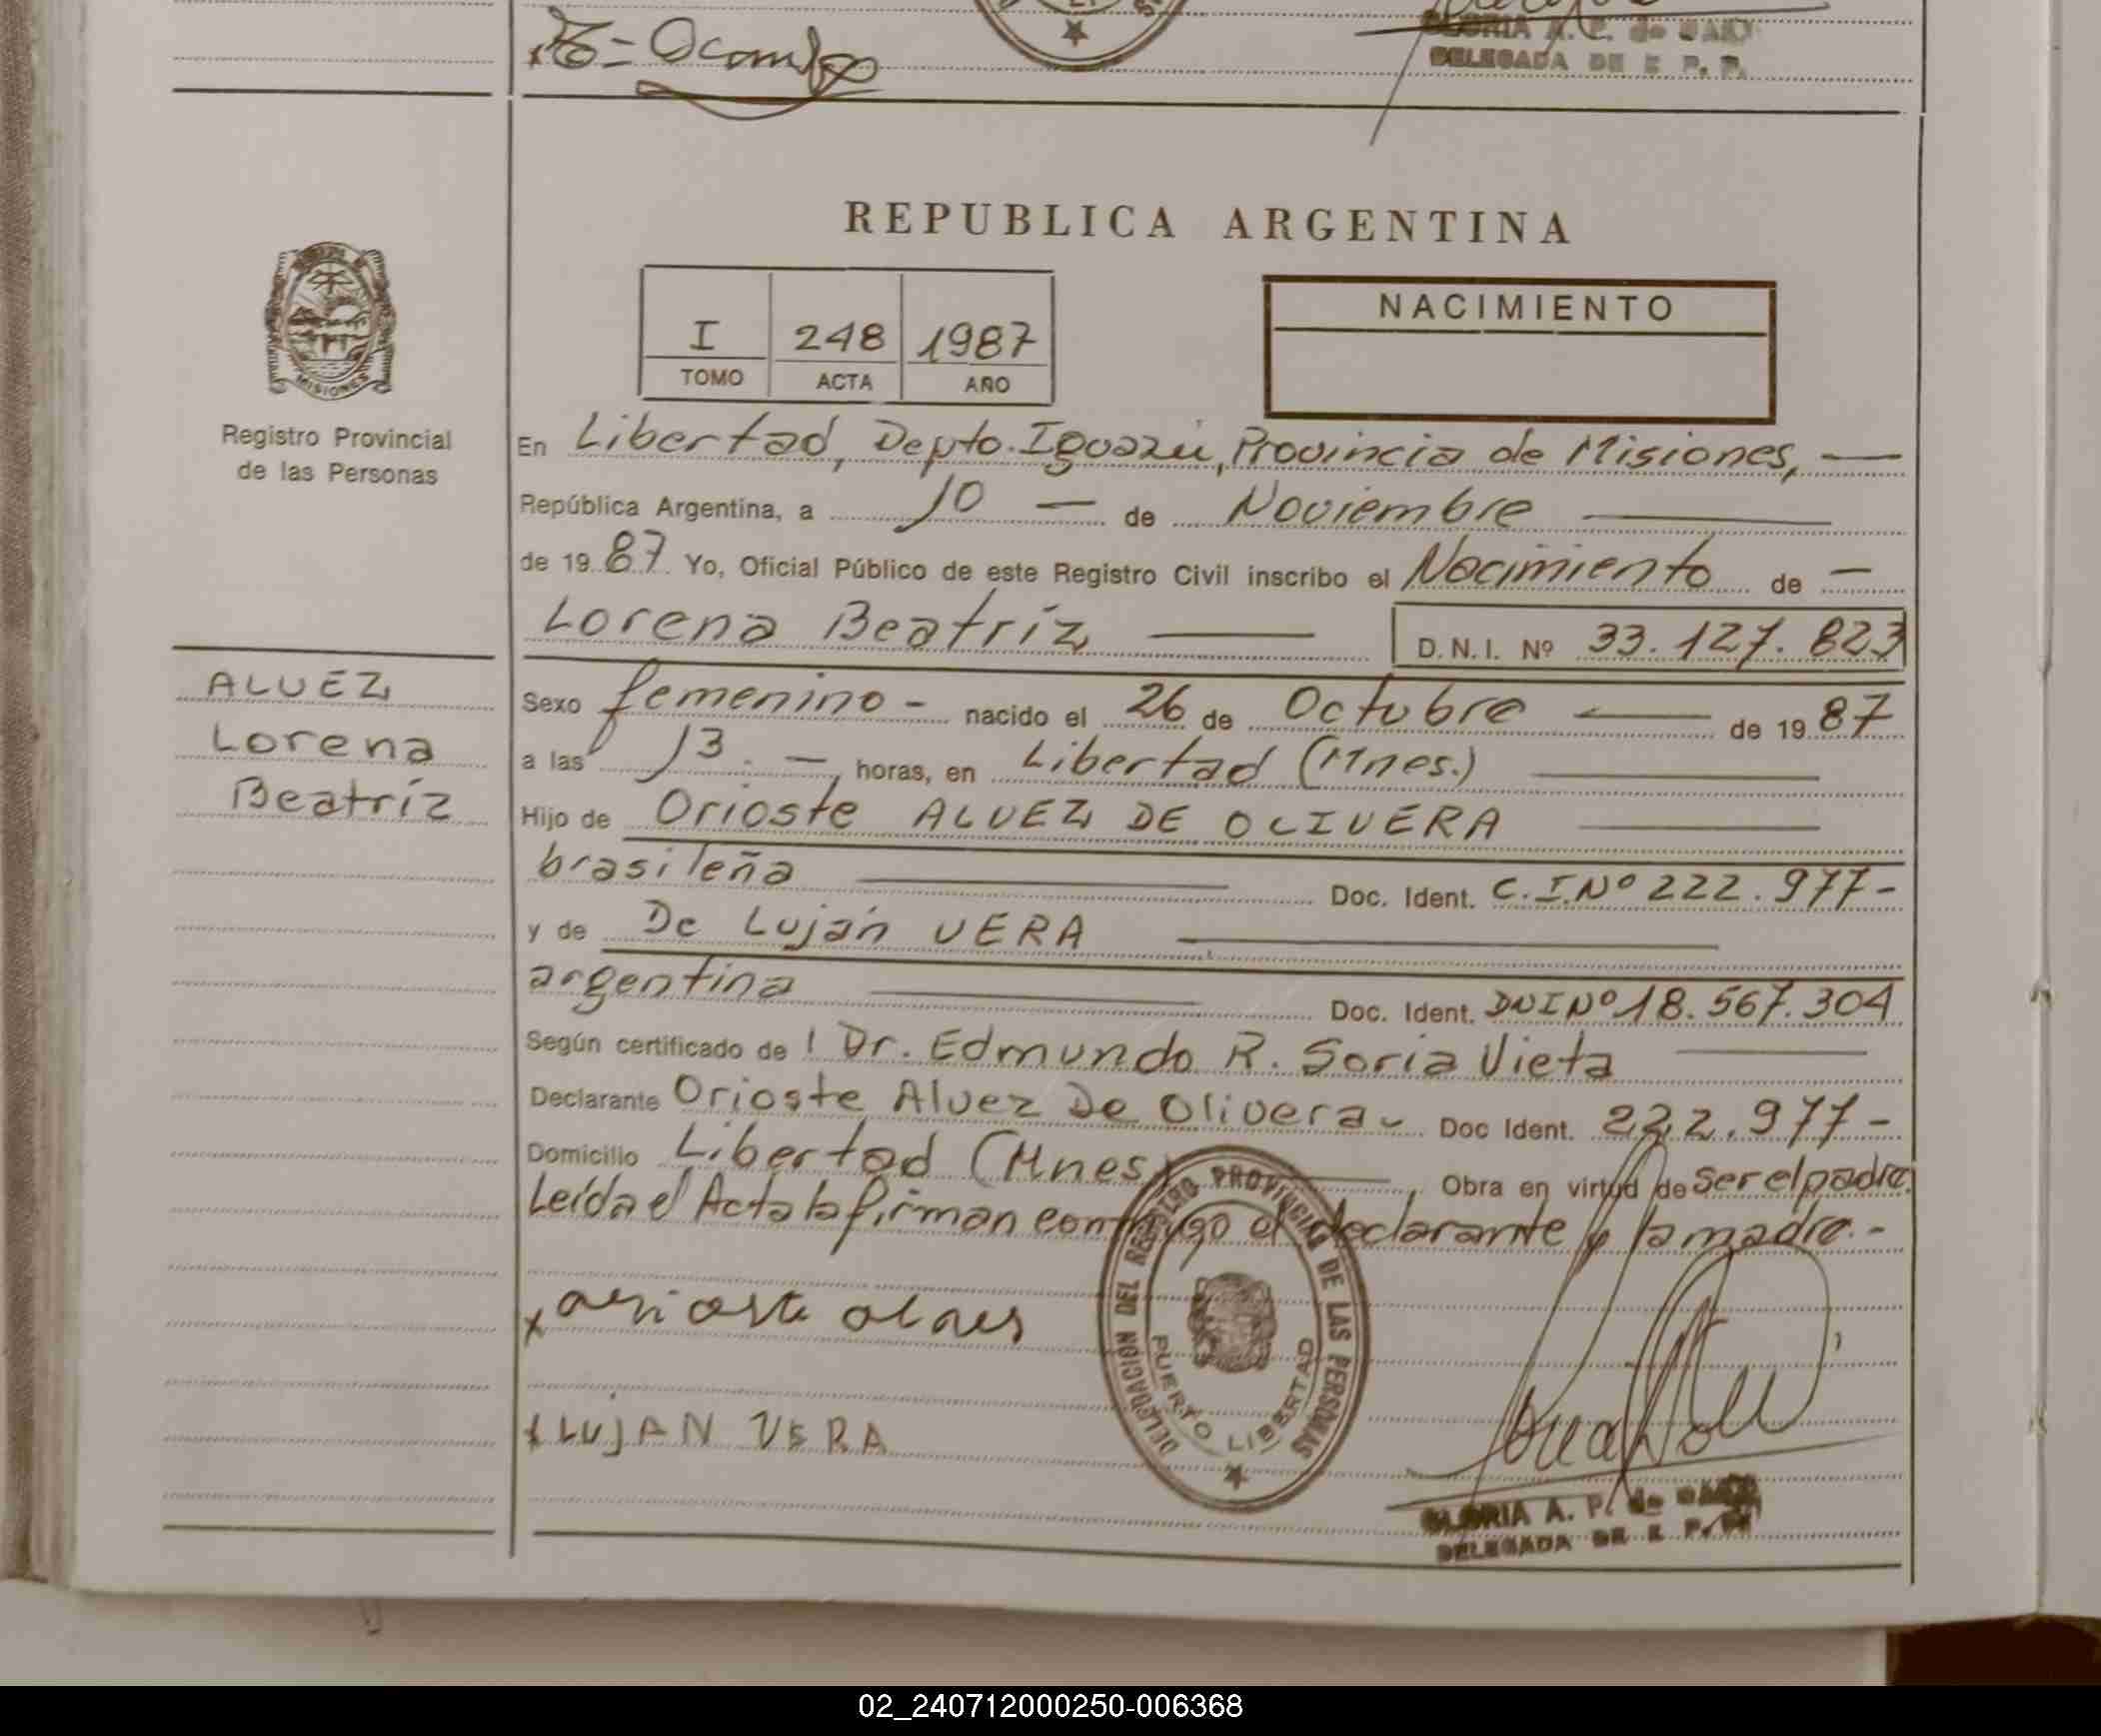 Ocampo
GLORIA A. P. de
DELEGADA DE E P. P.
REPUBLICA ARGENTINA
I 248 1987
TOMO ACTA AÑO
NACIMIENTO
MISIONES
Registro Provincial
de las Personas
En Libertad, Depto. Iguazú, Provincia de Misiones,
República Argentina, a 10 de Noviembre
de 1987 Yo, Oficial Público de este Registro Civil inscribo el Nacimiento de
Lorena Beatríz D.N.I. Nº 33.127.823
ALVEZ
Lorena
Beatríz
Sexo femenino - nacido el 26 de Octubre de 1987
a las 13. horas, en Libertad (Mnes.)
Hijo de Orioste ALVEZ DE OLIVERA
brasileña Doc. Ident. C.I.Nº 222.977-
y de De Luján VERA
argentina Doc. Ident. DNI Nº 18.567.304
Según certificado de l Dr. Edmundo R. Soria Vieta
Declarante Orioste Alvez De Olivera - Doc Ident. 222.977-
Domicilio Libertad (Mnes.) , Obra en virtud de ser el padre.
Leída el Acta la firman conmigo el declarante y la madre.-
x orioste alves
x LUJAN VERA
DELEGACION DEL REGISTRO PROVINCIAL DE LAS PERSONAS
PUERTO LIBERTAD
GLORIA A. P. de
DELEGADA DE E P. P.
02_240712000250-006368